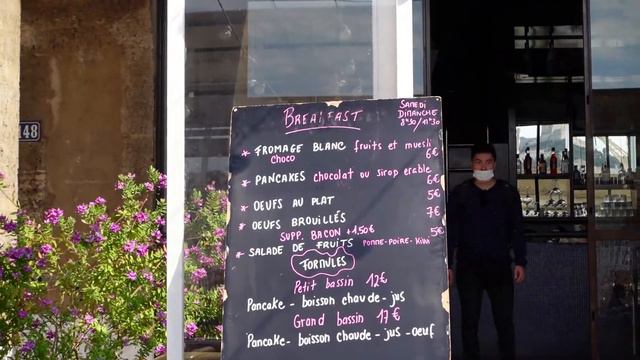 148
BREAKFAST
SAMEDI
DIMANCHE
8H30/11H30
* FROMAGE BLANC fruits et muesli
choco 6€
* PANCAKES chocolat ou sirop erable
6€
* OEUFS AU PLAT 5€
* OEUFS BROUILLÉS 7€
SUPP. BACON +1.50€
* SALADE DE FRUITS POMME-POIRE-KIWI 5€
FORMULES
Petit bassin 12€
Pancake - boisson chaude - jus
Grand bassin 17€
Pancake - boisson chaude - jus - oeuf